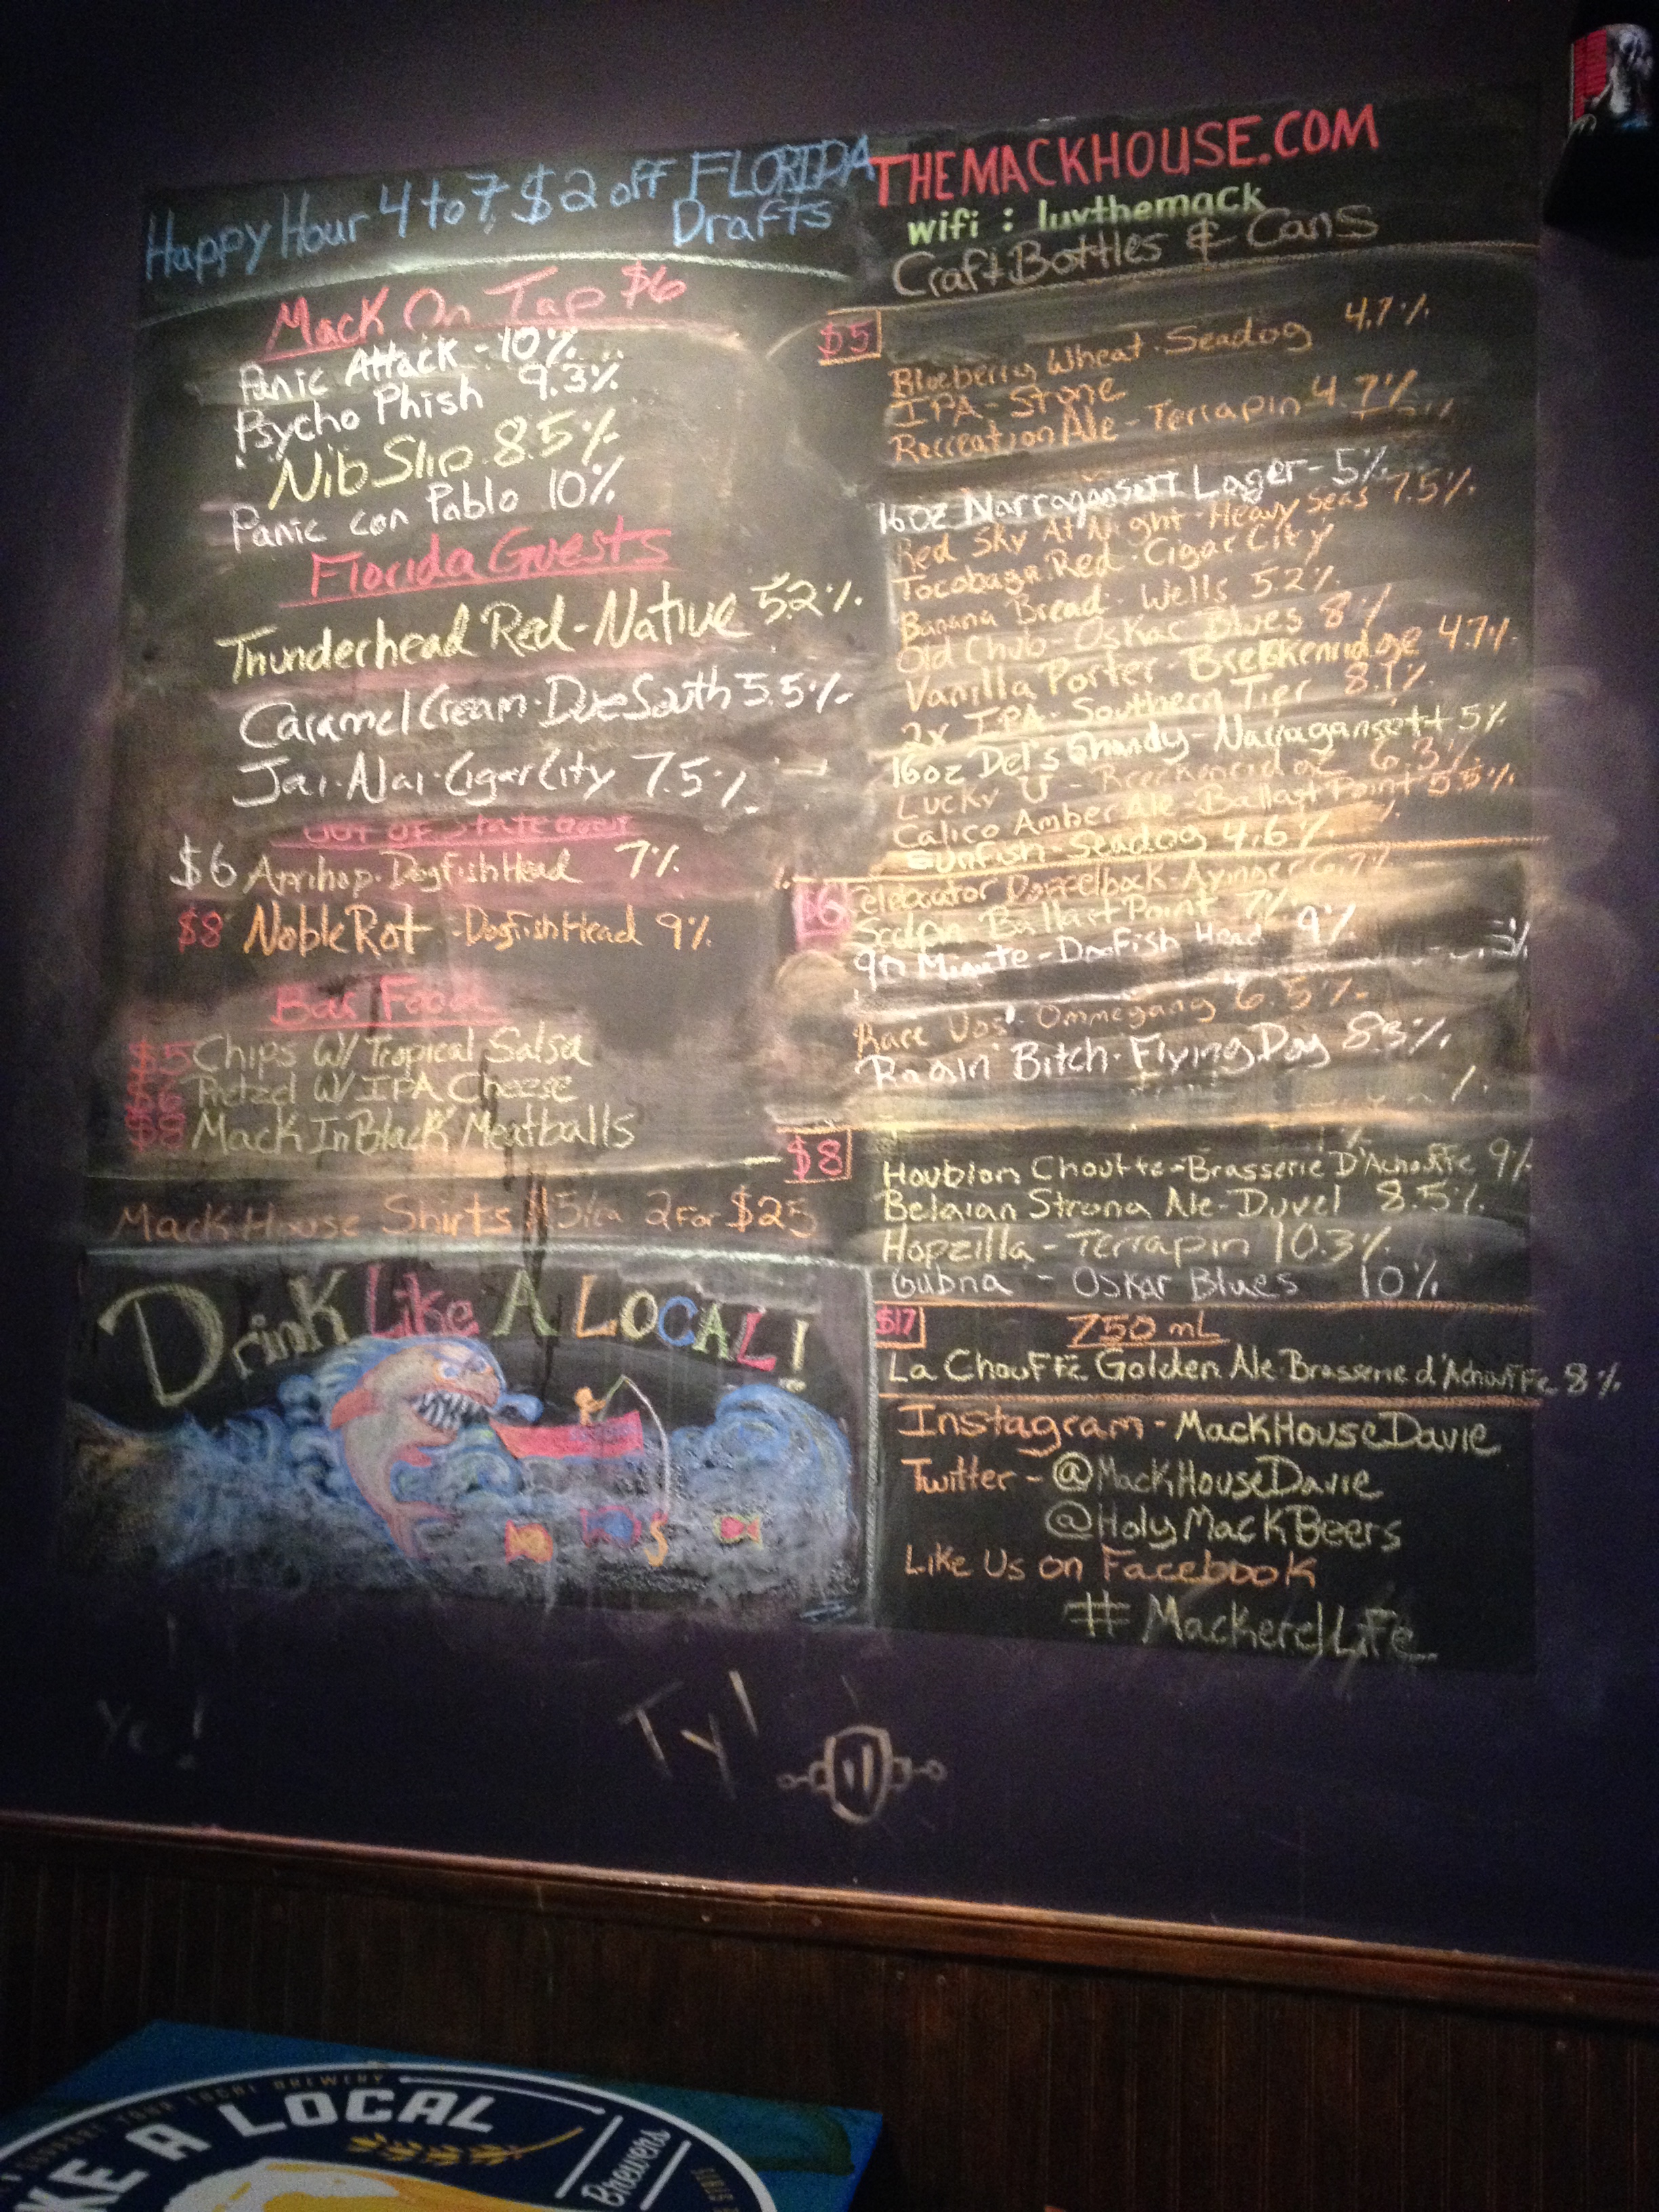 Happy Hour 4 to 7 $2 off FLORIDA
Drafts
Mack On Tap $6
Panic Attack - 10%
Psycho Phish 9.3%
Nib Slip 8.5%
Panic con Pablo 10%
Florida Guests
Thunderhead Red - Native 5.2%
Caramel Cream - Due South 5.5%
Jai-Alai - Cigar City 7.5%
OUT OF State
$6 Aprihop - Dogfish Head 7%
$8 Noble Rot - Dogfish Head 9%
Bar Food
$5 Chips W/ Tropical Salsa
$6 Pretzel W/ IPA Cheese
Mack In Black Meatballs
Mack House Shirts 15/ea 2 For $25
Drink Like A LOCAL!
THEMACKHOUSE.COM
wifi : luvthemack
Craft Bottles & Cans
$5
Blueberry Wheat - Seadog 4.7%
IPA - Stone
Recreation Ale - Terrapin 4.7%
16oz Narragansett Lager - 5%
Red Sky At Night - Heavy Seas 7.5%
Tocobaga Red - Cigar City
Banana Bread - Wells 5.2%
Old Chub - Oskar Blues 8%
Vanilla Porter - Breckenridge 4.7%
2x IPA - Southern Tier 8.1%
16oz Del's Shandy - Narragansett 5%
Lucky U - Breckenridge 6.3%
Calico Amber Ale - Ballast Point 5.5%
Sunfish - Seadog 4.6%
$6
Celebrator Doppelbock - Ayinger 6.7%
Sculpin - Ballast Point 7%
90 Minute - Dogfish Head 9%
Rare Vos - Ommegang 6.5%
Ragin' Bitch - Flying Dog 8.3%
$8
Houblon Chouffe - Brasserie D'Achouffe 9%
Belgian Strong Ale - Duvel 8.5%
Hopzilla - Terrapin 10.3%
Gubna - Oskar Blues 10%
$17 750 mL
La Chouffe Golden Ale - Brasserie d'Achouffe 8%
Instagram - MackHouseDavie
Twitter - @MackHouseDavie
@HolyMackBeers
Like Us on Facebook
#MackerelLife
Ty!
SUPPORT YOUR LOCAL BREWERY
KE A LOCAL
Brewers